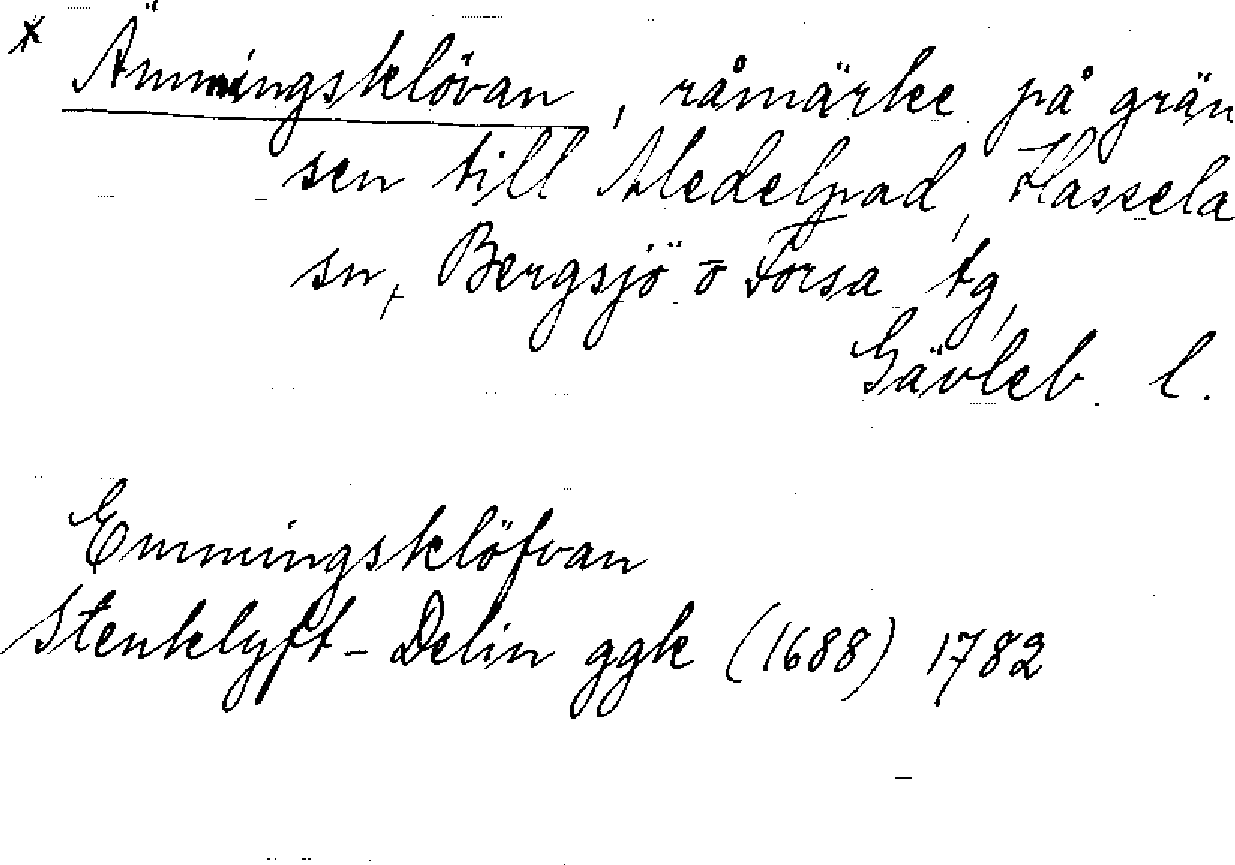 * Ämningsklövan, råmärke på grän
sen till Medelpad, Hassela
sn, Bergsjö o Forsa tg,
Gävleb. l.
Emmingsklöfvan
Stenklyft - Delin ggk (1688) 1782